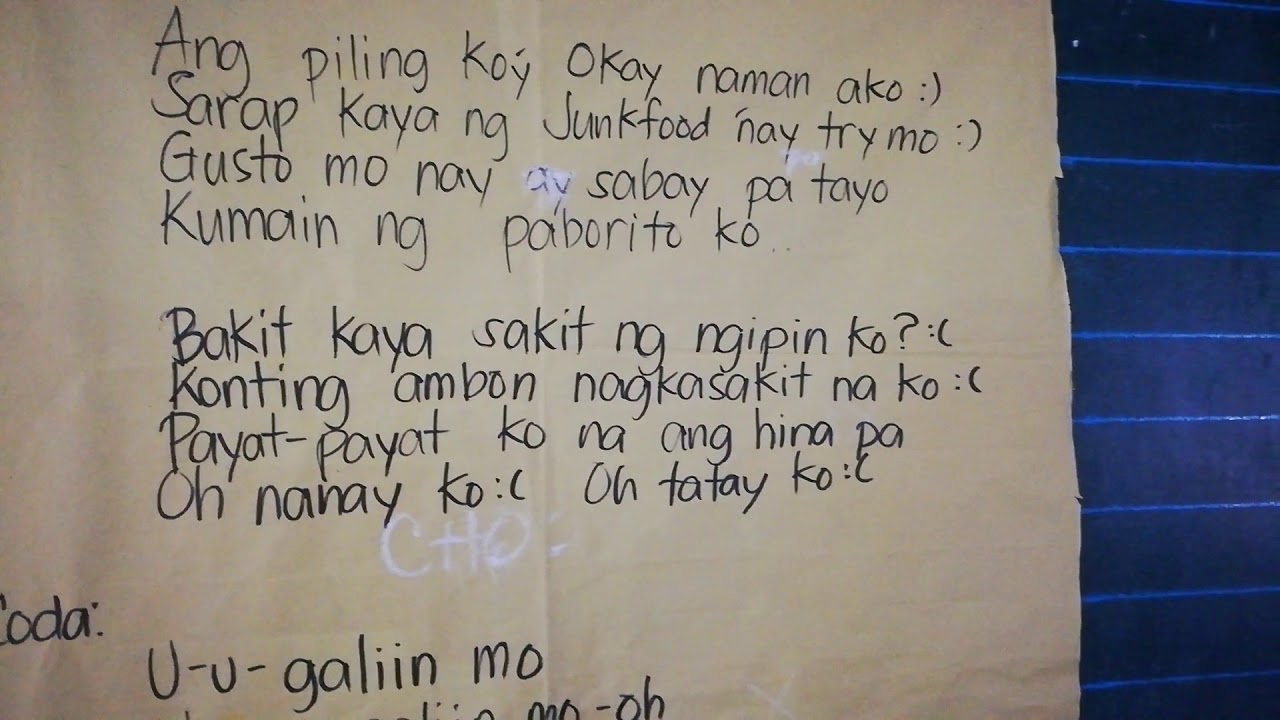 Ang piling koý Okay naman ako :)
Sarap kaya ng Junkfood nay try mo :)
Gusto mo nay ay sabay pa tayo
Kumain ng paborito ko..
Bakit kaya sakit ng ngipin ko? :(
Konting ambon nagkasakit na ko :(
Payat-payat ko na ang hina pa
Oh nanay ko :( Oh tatay ko :(
CHO:
Coda:
U-u-galiin mo
galiin mo-oh